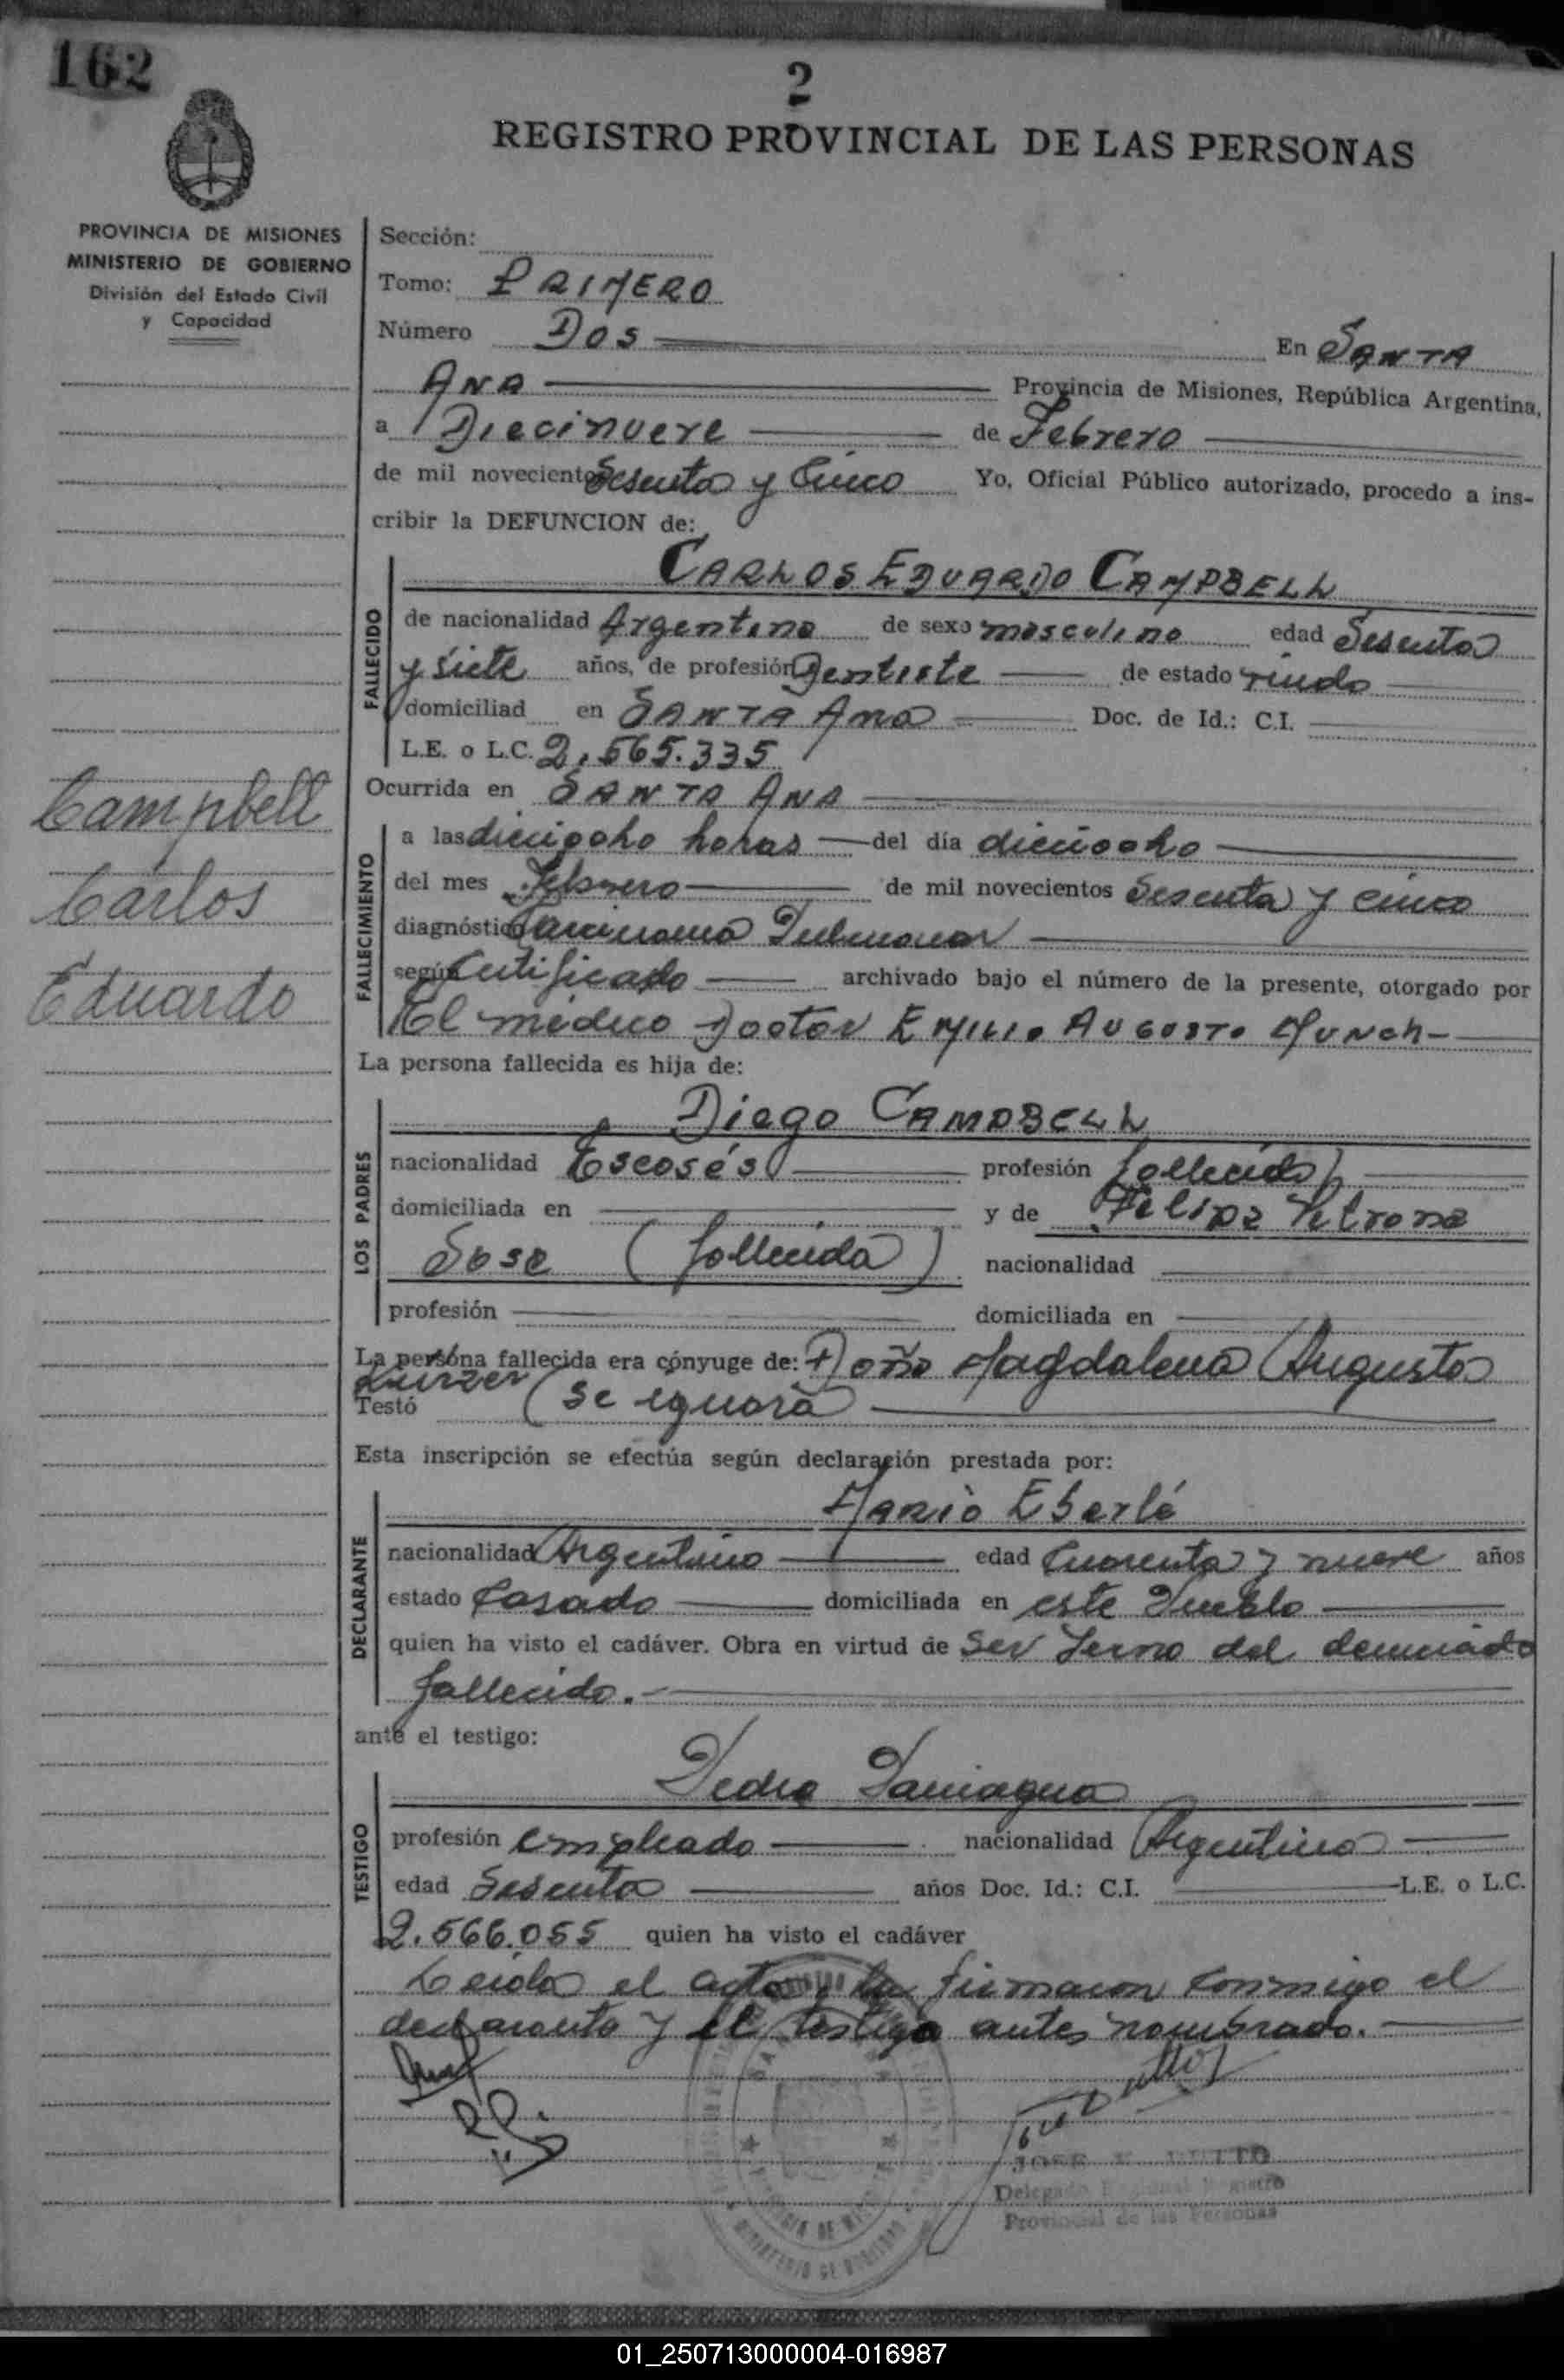 162
2
REGISTRO PROVINCIAL DE LAS PERSONAS
PROVINCIA DE MISIONES
MINISTERIO DE GOBIERNO
División del Estado Civil
y Capacidad
Sección:
Tomo: PRIMERO
Número Dos En SANTA
ANA Provincia de Misiones, República Argentina,
a Diecinueve de Febrero
de mil novecientos Sesenta y Cinco Yo, Oficial Público autorizado, procedo a ins-
cribir la DEFUNCION de:
CARLOS EDUARDO CAMPBELL
FALLECIDO
de nacionalidad Argentina de sexo masculino edad Sesenta
y siete años, de profesión Dentista de estado viudo
domiciliad en SANTA Ana Doc. de Id.: C.I.
L.E. o L.C. 2.565.335
Ocurrida en SANTA ANA
Campbell
Carlos
Eduardo
FALLECIMIENTO
a las dieciocho horas del día dieciocho
del mes Febrero de mil novecientos Sesenta y cinco
diagnóstico Carcinoma Pulmonar
según Certificado archivado bajo el número de la presente, otorgado por
El médico Doctor EMILIO AUGUSTO MUNCH
La persona fallecida es hija de:
LOS PADRES
Diego CAMPBELL
nacionalidad Escosés profesión fallecido)
domiciliada en y de Felipa Petrona
Sosa (fallecida) nacionalidad
profesión domiciliada en
La persona fallecida era cónyuge de: Doña Magdalena Augusta
Testó (se ignora
Esta inscripción se efectúa según declaración prestada por:
DECLARANTE
Mario Eberlé
nacionalidad Argentino edad Cuarenta y nueve años
estado Casado domiciliada en este Pueblo
quien ha visto el cadáver. Obra en virtud de Ser Yerno del
fallecido.
ante el testigo:
TESTIGO
Pedro Paniagua
profesión empleado nacionalidad Argentino
edad Sesenta años Doc. Id.: C.I. L.E. o L.C.
2.566.055 quien ha visto el cadáver
Leida el acta la firmaron conmigo el
declarante y el testigo antes nombrado.
JOSE
Delegado Registro
Provincial de las Personas
01_250713000004-016987